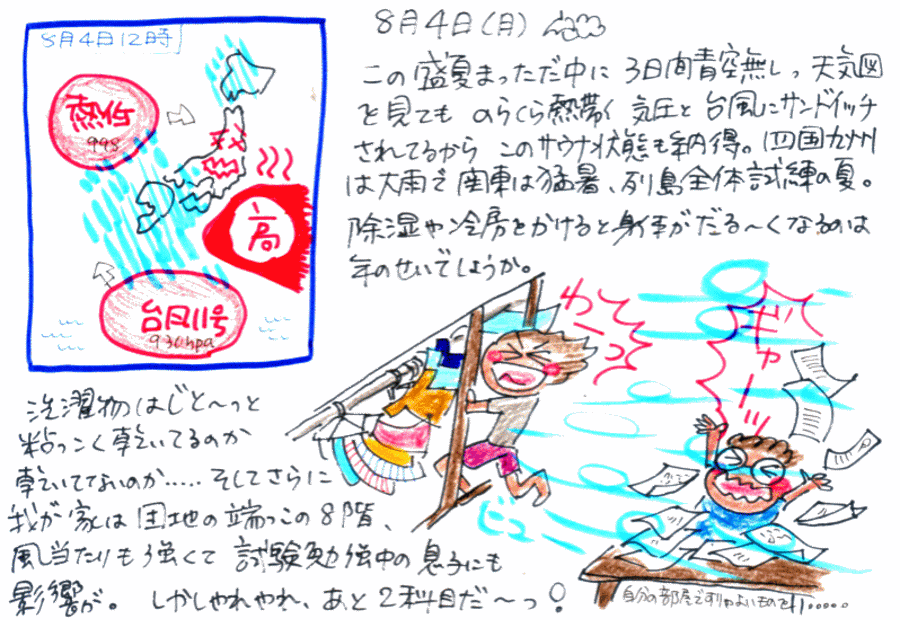 8月4日12時
熱低
998
我
高
台風11号
930hpa
8月4日(月)
この盛夏まっただ中に 3日間青空無しっ 天気図
を見ても のらくら熱帯く 気圧と 台風にサンドイッチ
されてるから このサウナ状態も納得。四国九州
は大雨で 関東は猛暑、列島全体試練の夏。
除湿や冷房をかけると身体がだる～くなるのは
年のせいでしょうか。
わーっ
ギャーッ
洗濯物はじと～っと
粘っこく乾いてるのか
乾いてないのか..... そしてさらに
我が家は団地の端っこの8階、
風当たりも強くて 試験勉強中の息子にも
影響が。 しかしやれやれ、あと2科目だ～っ!
ビュー
自分の部屋ですりゃよいものを!.....